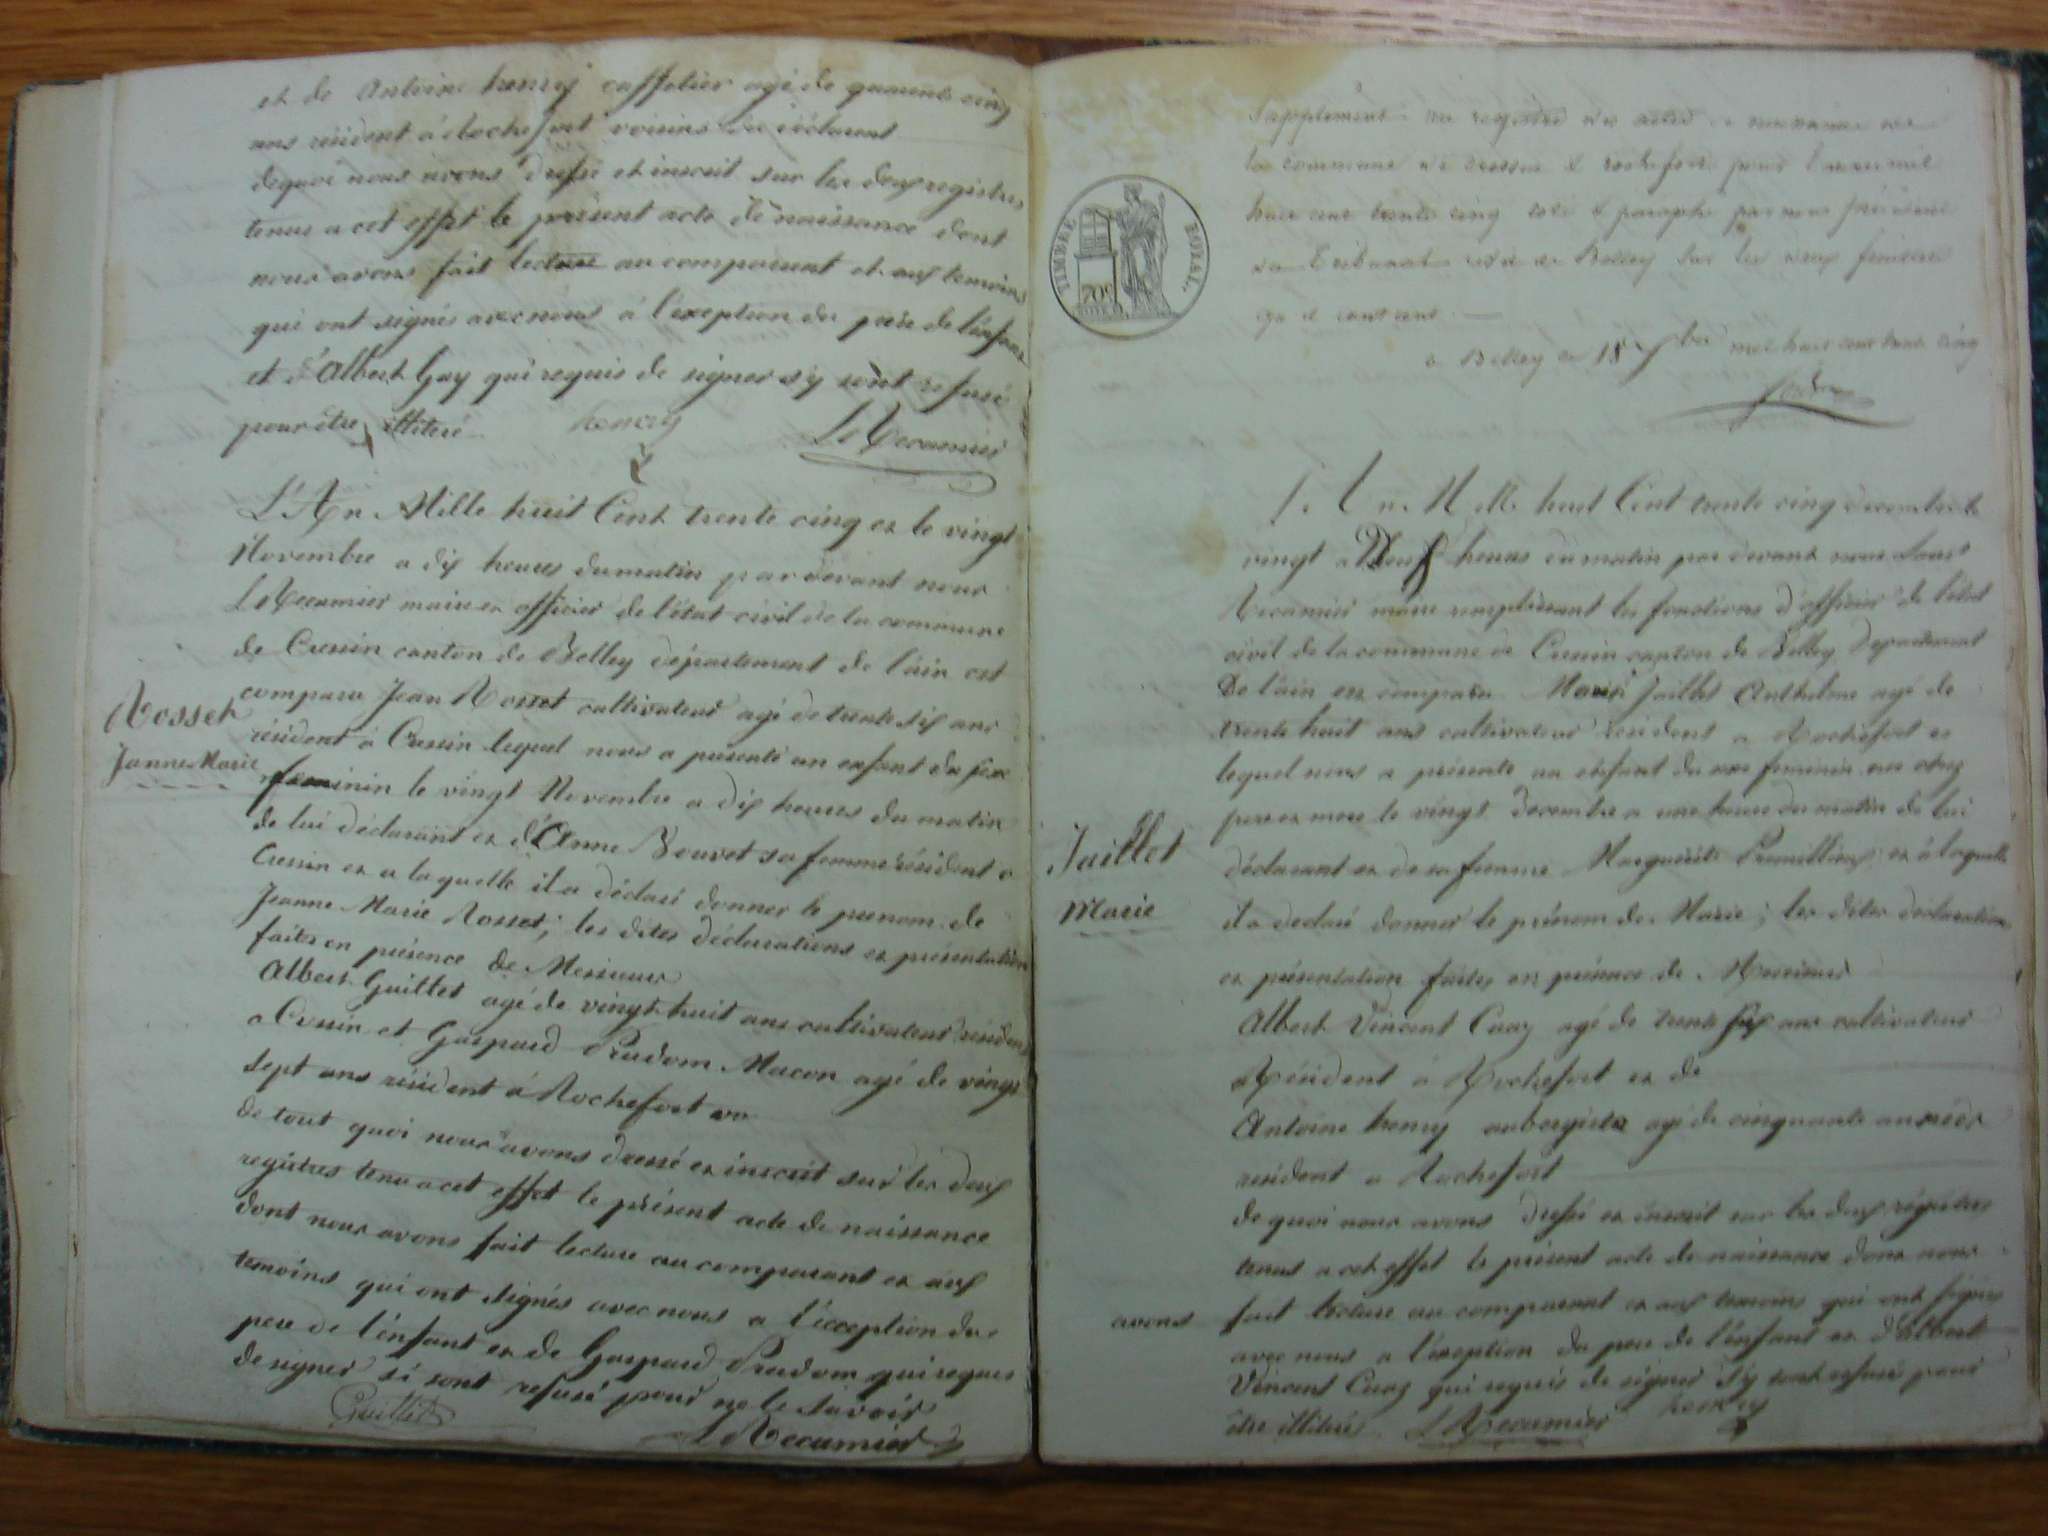 et de Antoine henry caffetier agé de quarente cinq
ans résident à Rochefort voisins du déclarant
dequoi nous avons dressé et inscrit sur les deux registres
tenus a cet effet le présent acte de naissance dont
nous avons fait lecture au comparant et aux temoins
qui ont signés avec nous à l'exeption du père de l'enfant
et d'Albert Guy qui requis de signer s'y sont refusé
pour être illiteré henry L Recamier
L'An Mille huit Cent trente cinq et le vingt
Novembre a dix heures du matin par devant nous
L Recamier maire et officier de l'état civil de la commune
de Cressin canton de Belley département de l'ain est
comparu Jean Rosset cultivateur agé de trente six ans
Rosset
Jeanne Marie
résident à Cressin lequel nous a présenté un enfant du sexe
feminin le vingt Novembre a dix heures du matin
de lui déclarant et d'Anne Bouvet sa femme résident a
Cressin et a laquelle il a déclaré donner le prenom de
Jeanne Marie Rosset; les dites déclarations et présentation
faites en présence de Messieurs
Albert Guillet agé de vingt huit ans cultivateur résident
a Cressin et Gaspard Prudom Macon agé de vingt
sept ans résident à Rochefort
de tout quoi nous avons dressé et inscrit sur les deux
registres tenu a cet effet le présent acte de naissance
dont nous avons fait lecture au comparant et aux
temoins qui ont signés avec nous a l'éxception du
pere de l'enfant et de Gaspard Prudom qui requis
de signer si sont refusé pour ne le savoir
Guillet L Recamier
Supplément au registre des actes de naissance de
la commune de Cressin & rochefort pour l'année mil
huit cent trente cinq coté & paraphé par nous président
du Tribunal civil de Belley sur les deux feuillets
a Belley le 18 7bre mil huit cent trente cinq
TIMBRE ROYAL
70c
L'An Mille huit Cent trente cinq decembre le
vingt a Neuf heures du matin par devant nous Louis
Recamier maire remplissant les fonctions d'officier de l'état
civil de la commune de Cressin canton de Belley Departement
De l'ain est comparu Jaillet Anthelme agé de
trente huit ans cultivateur résident a Rochefort
lequel nous a présenté un enfant du sexe feminin
pere et mere le vingt Decembre a une heure du matin de lui
Jaillet
Marie
déclarant et de sa femme Marguerite et à laquelle
il a declaré donner le prénom de Marie; les dites déclaration
et présentation faites en présence de Messieurs
Albert Vincent Cuaz agé de trente six ans cultivateur
Résident à Rochefort et de
Antoine henry aubergiste agé de cinquante ans
resident a Rochefort
de quoi nous avons dressé et inscrit sur les deux régistres
tenus a cet effet le présent acte de naissance dont nous
avons fait lecture au comparant et aux temoins qui ont signés
avec nous a l'exeption du pere de l'enfant et d'albert
Vincent Cuaz qui requis de signer s'y sont refusés pour
être illiterés L Recamier henry